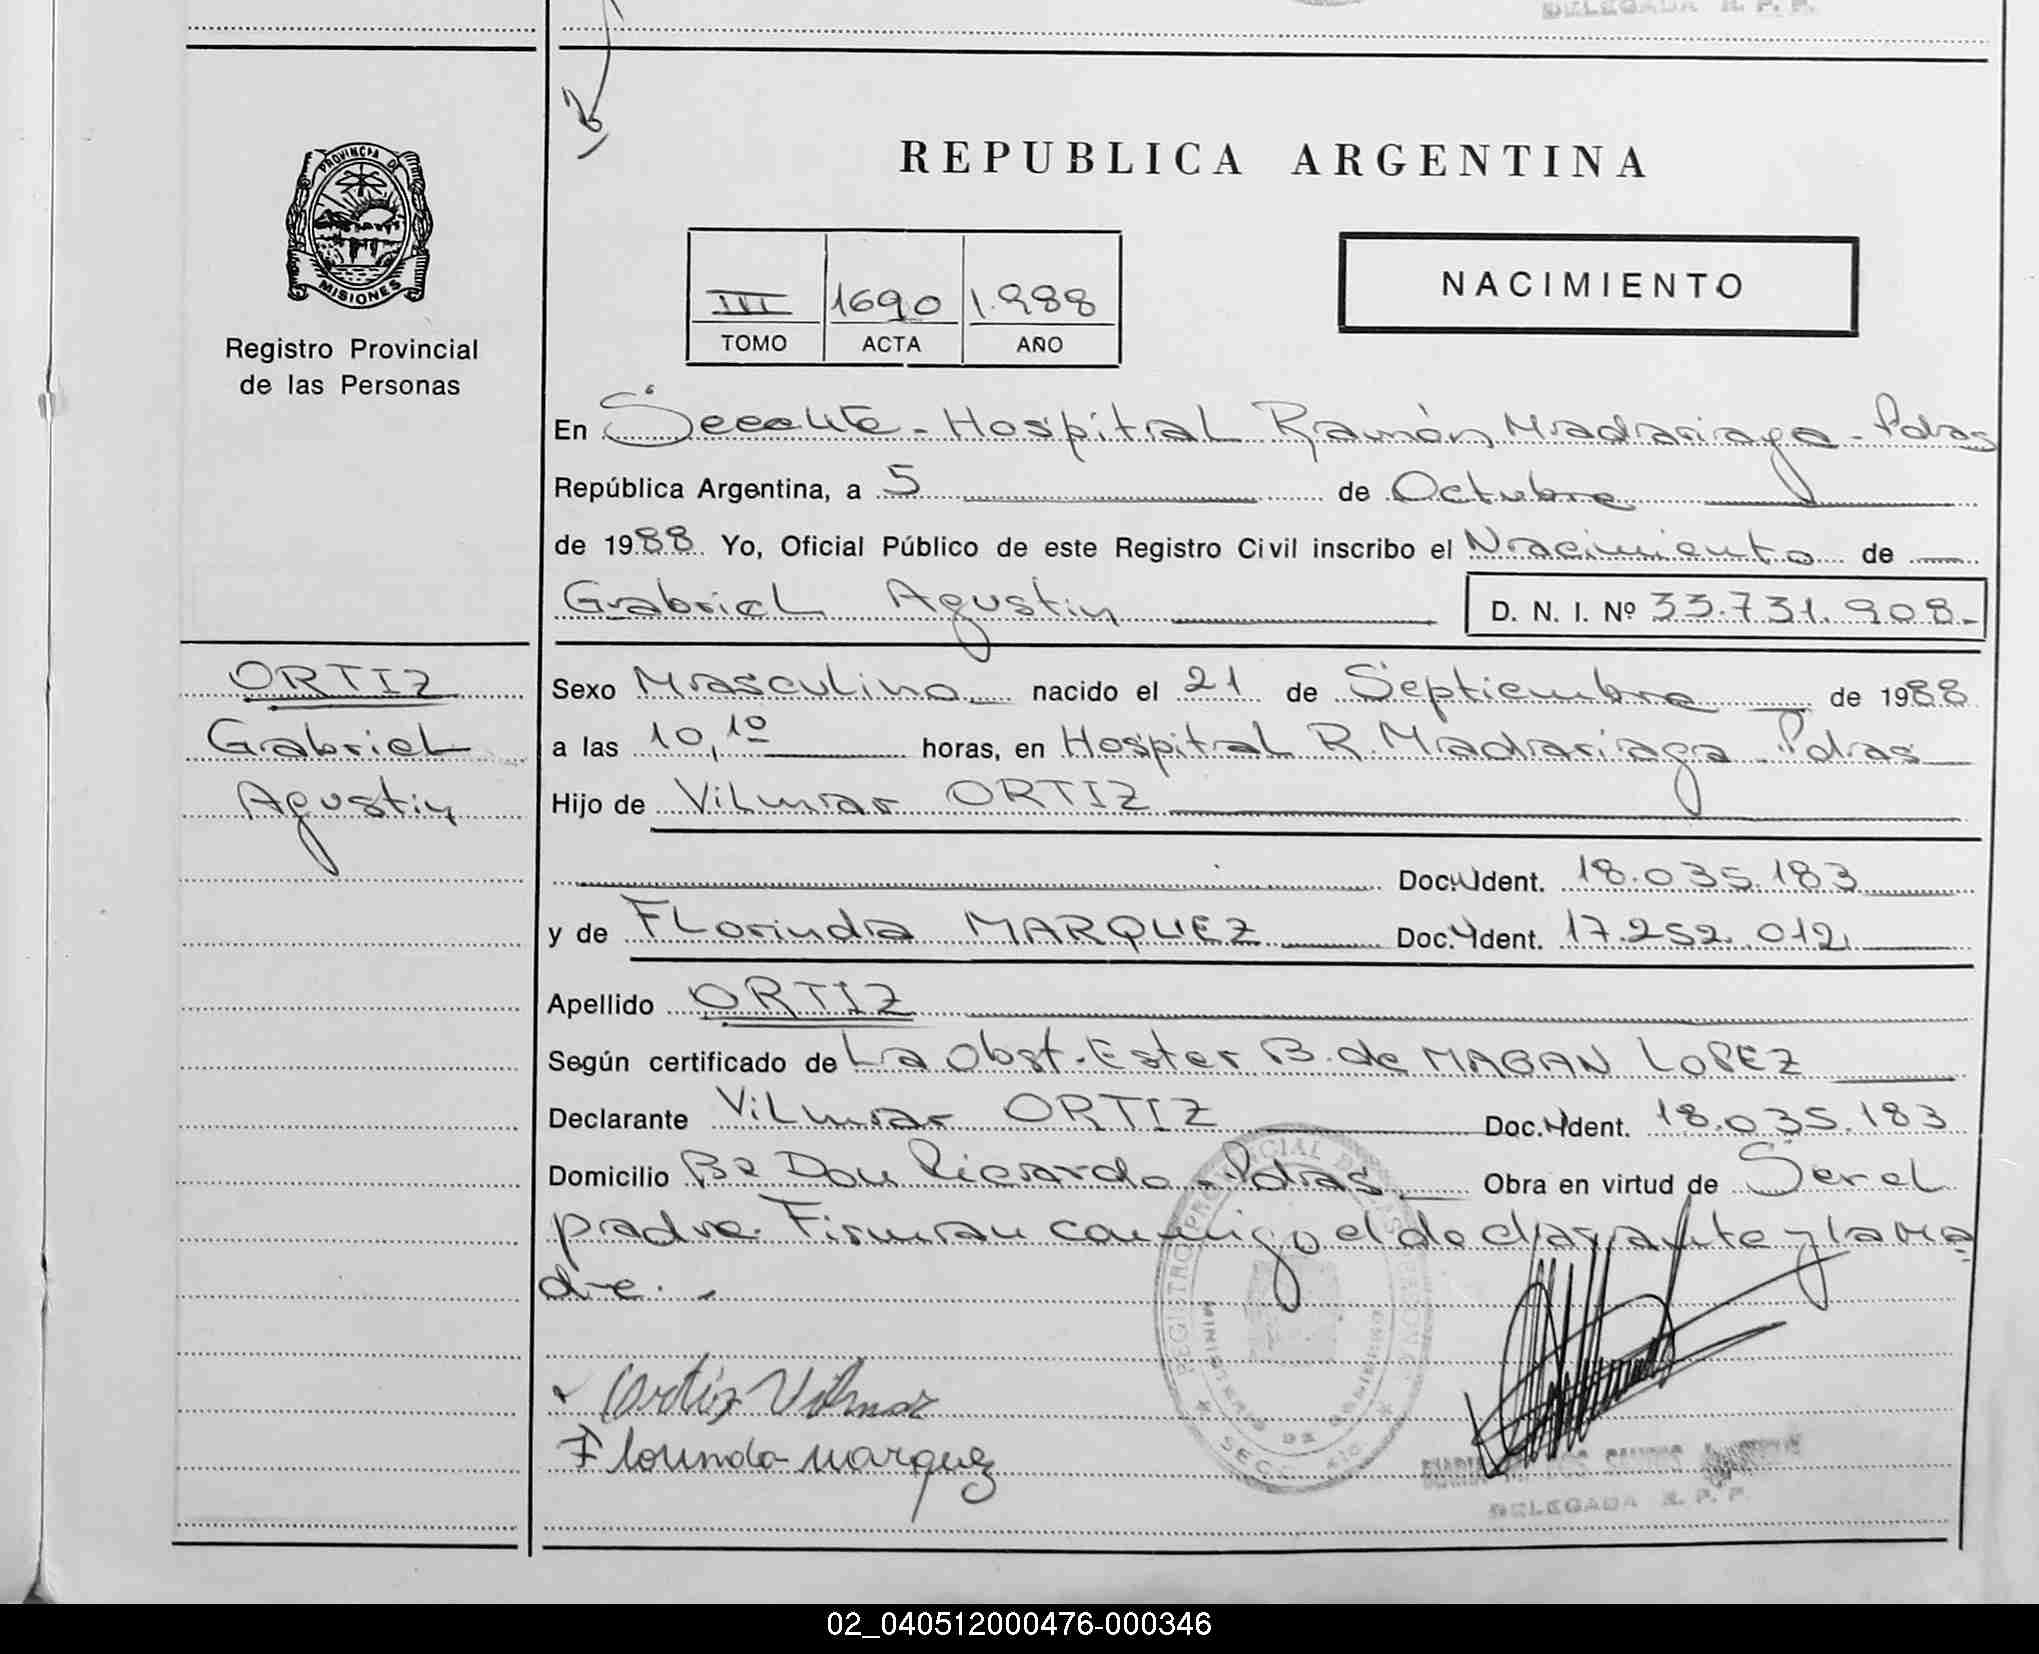 DELEGADA R. P. P.
REPUBLICA ARGENTINA
PROVINCIA DE
MISIONES
Registro Provincial
de las Personas
III 1690 1.988
TOMO ACTA AÑO
NACIMIENTO
En Hospital Ramón Madariaga - Pdas
República Argentina, a 5 de Octubre
de 1988 Yo, Oficial Público de este Registro Civil inscribo el Nacimiento de
Gabriel Agustin D. N. I. Nº 33.731.908.-
ORTIZ
Gabriel
Agustin
Sexo Masculino nacido el 21 de Septiembre de 1988
a las 10,10 horas, en Hospital R. Madariaga - Pdas
Hijo de Vilmar ORTIZ
Doc. Ident. 18.035.183
y de Florinda MARQUEZ Doc. Ident. 17.252.012
Apellido ORTIZ
Según certificado de La Obst. Ester B. de MAGAN LOPEZ
Declarante Vilmar ORTIZ Doc. Ident. 18.035.183
Domicilio Bº Don Ricardo - Pdas Obra en virtud de Ser el
padre. Firman conmigo el declarante y la ma
dre. -
Ortiz Vilmar
Florinda marquez
REGISTRO PROVINCIAL DE LAS PERSONAS
MINISTERIO DE GOBIERNO
SECC.
DELEGADA R. P. P.
02_040512000476-000346